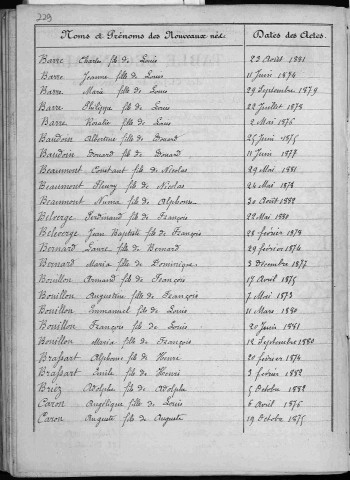 229
Noms et Prénoms des Nouveaux nés. Dates des Actes.
Barre Charles fils de Louis 23 Août 1881
Barre Jeanne fille de Louis 11 Juin 1874
Barre Maria fille de Louis 29 Septembre 1879
Barre Philippe fils de Louis 22 Juillet 1878
Barre Rosalie fille de Louis 2 Mai 1876
Baudoin Albertine fille de Douard 25 Juin 1875
Baudoin Douard fils de Douard 11 Juin 1877
Beaumont Constant fils de Nicolas 29 Mai 1881
Beaumont Fleury fils de Nicolas 24 Mai 1878
Beaumont Numa fils de Alphonse 30 Août 1882
Beloerge Ferdinand fils de François 22 Mai 1881
Beloerge Jean Baptiste fils de François 28 février 1878
Bernard Laure fille de Bernard 29 février 1874
Bernard Maria fille de Dominique 3 Décembre 1877
Bouillon Armand fils de François 17 Avril 1875
Bouillon Augustine fille de François 7 Mai 1873
Bouillon Emmanuel fils de Louis 11 Mars 1880
Bouillon François fils de Louis 20 Juin 1881
Bouillon Maria fille de François 12 Septembre 1880
Brassart Alphonse fils de Henri 20 février 1874
Brassart Emile fils de Henri 3 février 1882
Briez Adolphe fils de Adolphe 5 Octobre 1882
Caron Angélique fille de Louis 6 Avril 1876
Caron Auguste fils de Auguste 19 Octobre 1875